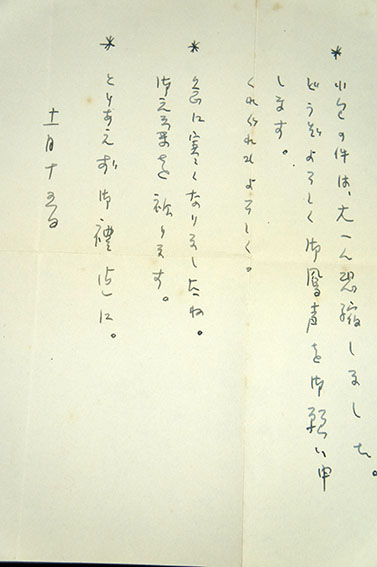 * 小包の件は、大へん恐縮しました。
どうぞよろしく御鳳声を御願い申
します。
くれぐれもよろしく。
* 急に寒くなりましたね。
御元気を祈ります。
* とりあえず御禮迄に。
十一月十五日